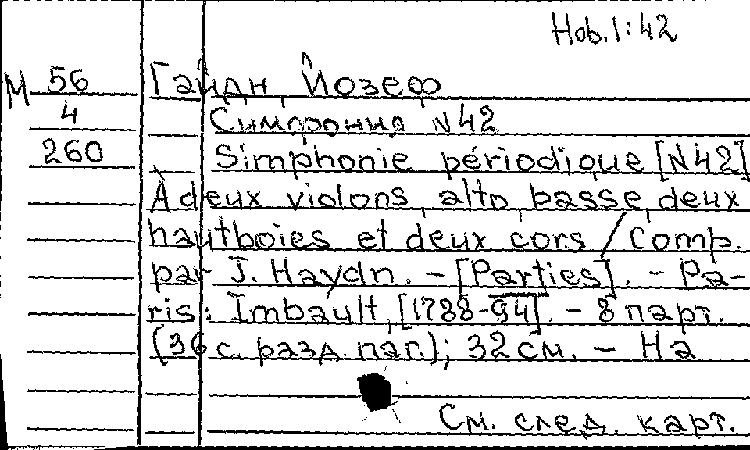 Hob. I:42
М 56 Гайдн, Йозеф
4 Симфония N42
260 Simphonie périodique [N42]
À deux violons, alto, basse, deux
hautboies et deux cors / Comp.
par J. Haydn. - [Parties]. - Pa-
ris: Imbault, [1788-94]. - 8 парт.
(36 с. разд. паг.); 32 см. - На
См. след. карт.